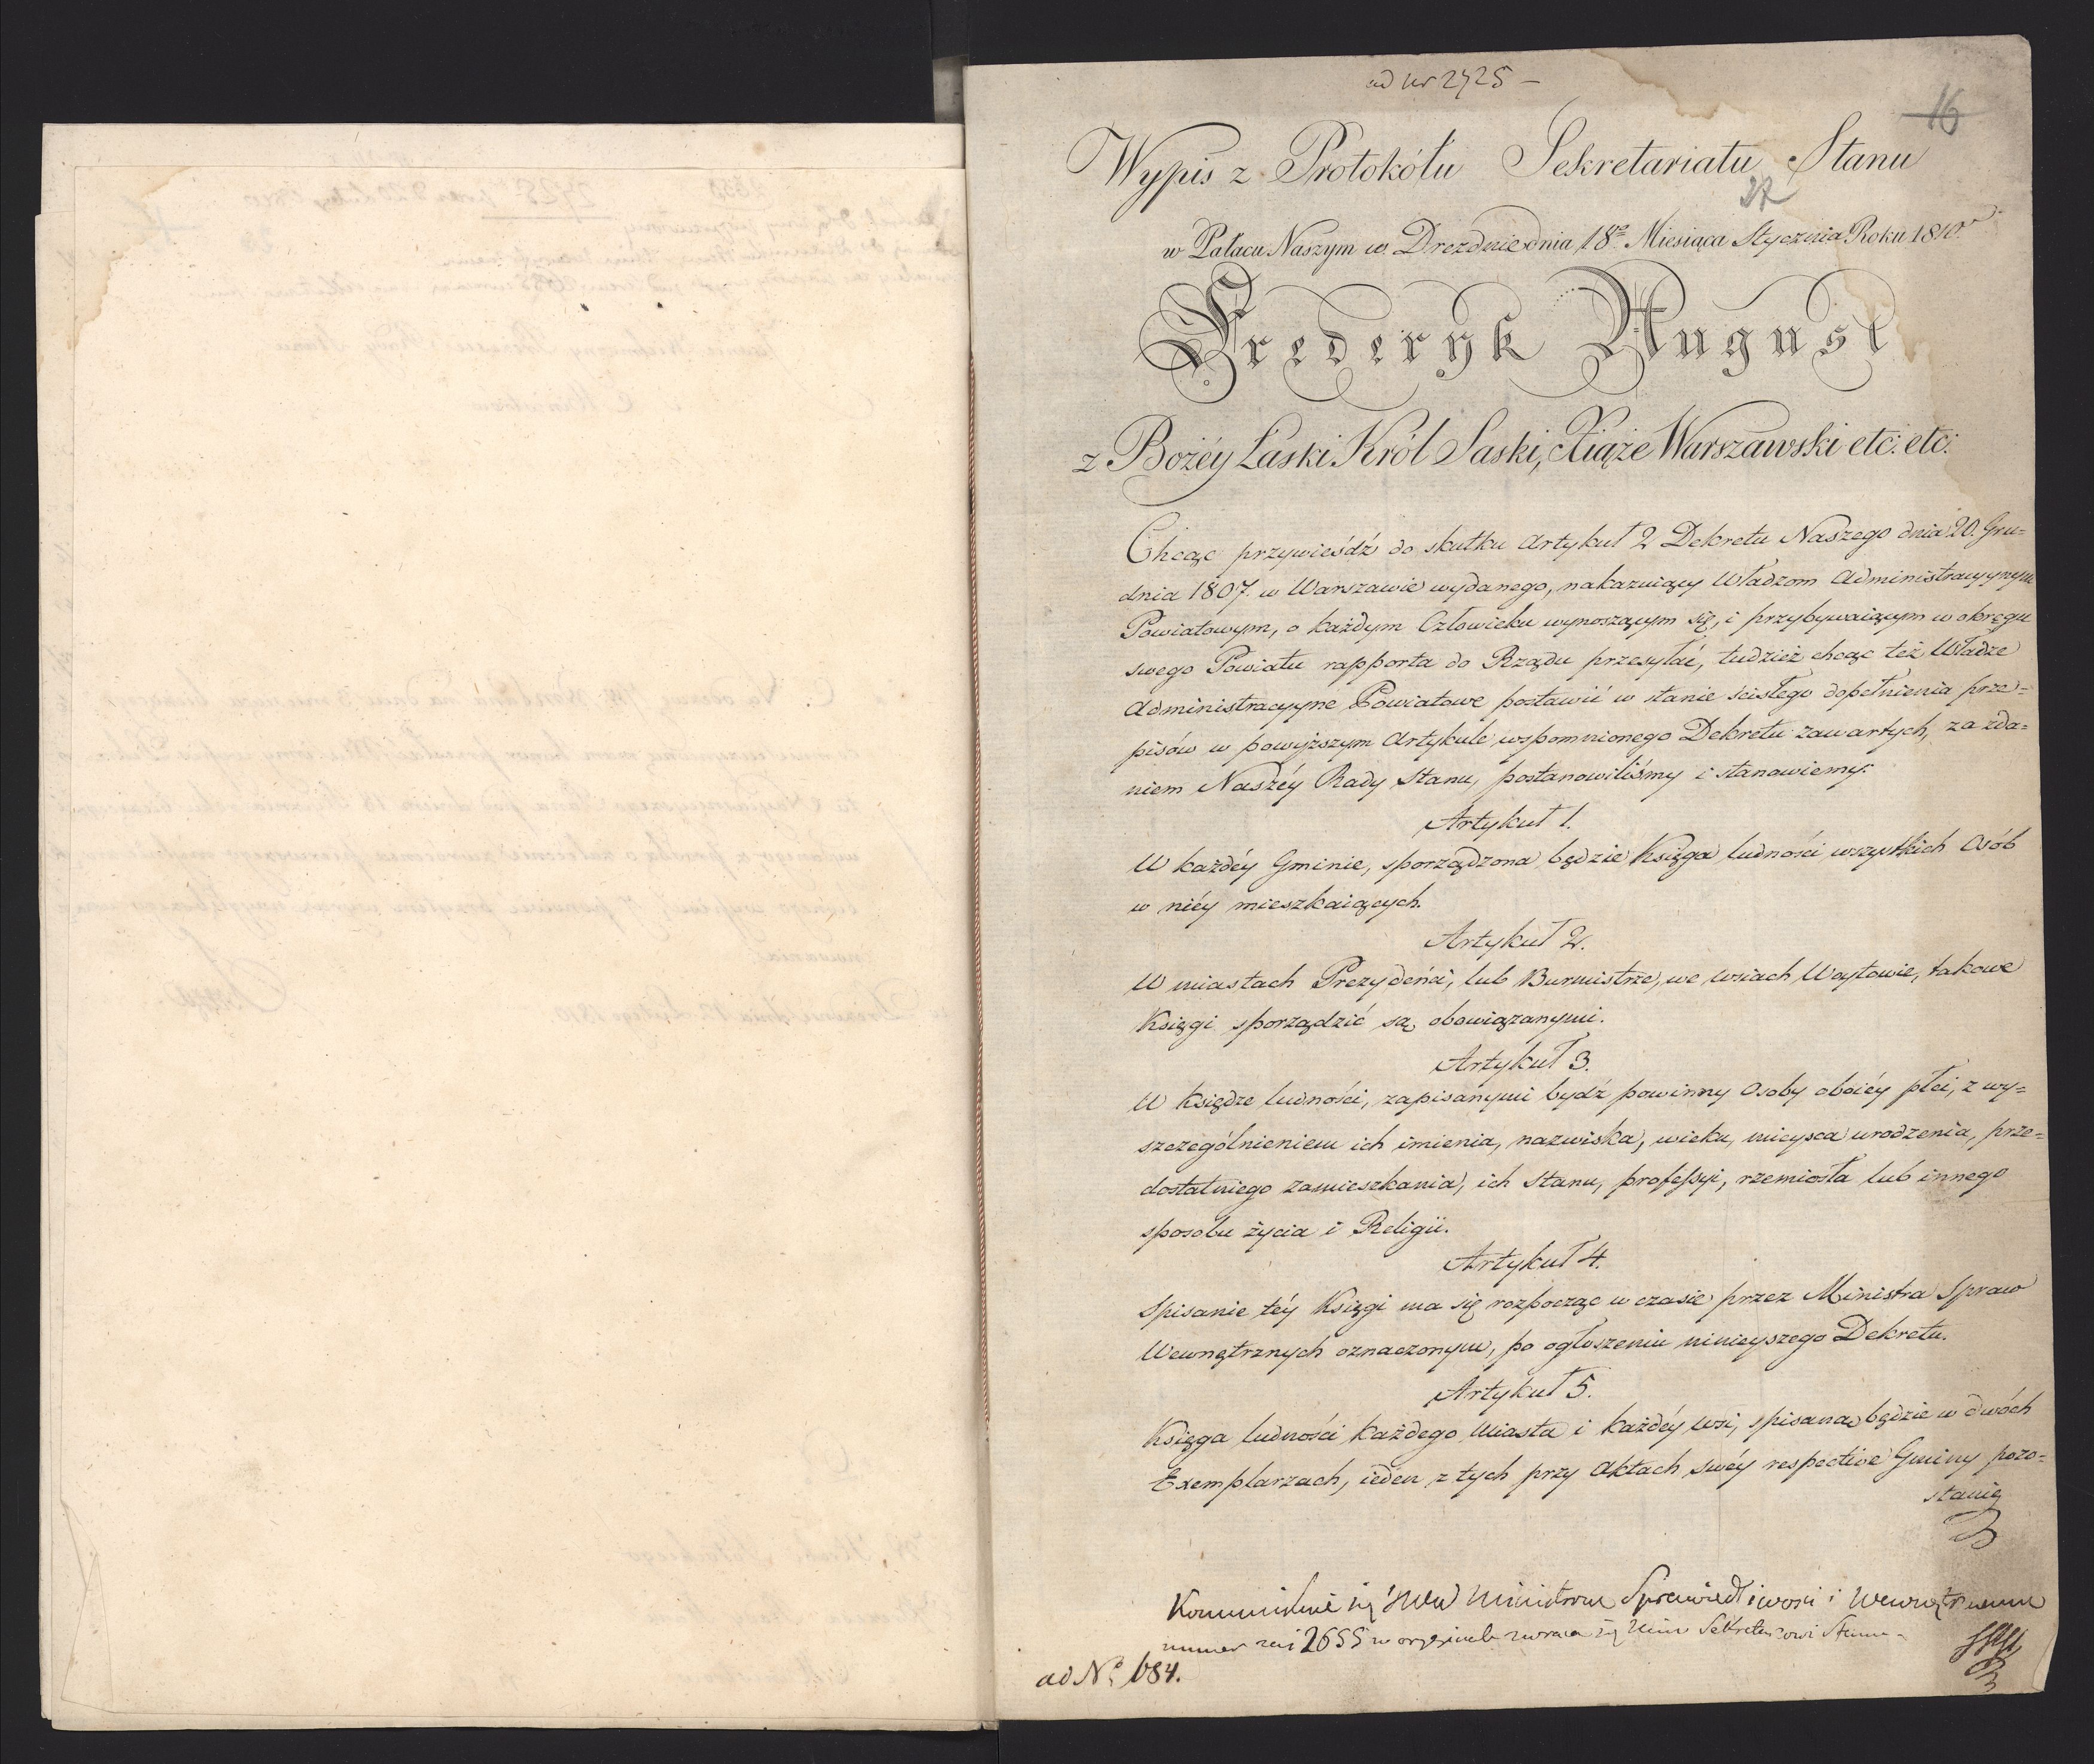 ad nr 2725 –
16
Wypis z Protokółu Sekretariatu Stanu
27
w Pałacu Naszym w Dreznie dnia 18go Miesiąca Stycznia Roku 1810.
Fryderyk August
z Bożéy Łaski Król Saski, Xiąże Warszawski etc: etc:
Chcąc przywieśdź do skutku Artykuł 2 Dekretu Naszego dnia 20. Gru=
dnia 1807. w Warszawie wydanego, nakazuiący Władzom Administracyynym
Powiatowym, o każdym Człowieku wynoszącym się, i przybywaiącym w okręgu
swego Powiatu rapporta do Rządu przesyłać, tudzież chcąc też Władze
Administracyyne Powiatowe postawić w stanie ścisłego dopełnienia prze=
pisów w powyższym Artykule wspomnionego Dekretu zawartych, za zda=
niem Naszéy Rady Stanu, postanowiliśmy i stanowiemy:
Artykuł 1.
W każdéy Gminie, sporządzona będzie Księga ludności wszystkich Osób
w niéy mieszkaiących.
Artykuł 2.
W miastach Prezydeńci, lub Burmistrze, we wsiach Woytowie, takowe
Księgi sporządzić są obowiązanymi.
Artykuł 3.
W Księdze ludności, zapisanymi bydź powinny Osoby oboiéy płci, z wy=
szczególnieniem ich imienia, nazwiska, wieku, mieysca urodzenia, prze=
dostatniego zamieszkania, ich Stanu, professyi, rzemiosła lub innego
sposobu życia i Religii.
Artykuł 4.
Spisanie téy Księgi ma się rozpocząc w czasie przez Ministra Spraw
Wewnętrznych oznaczonym, po ogłoszeniu ninieyszego Dekretu.
Artykuł 5.
Księga ludności każdego Miasta i każdéy wsi, spisana będzie w dwóch
Exemplarzach, ieden z tych przy Aktach swéy respective Gminy pozo=
stanie
Ministrom Sprawiedliwości i Wewnętrznemu
numer zaś 2655 w oryginale zwraca się Sekretarzowi Stanu
ad No 684.